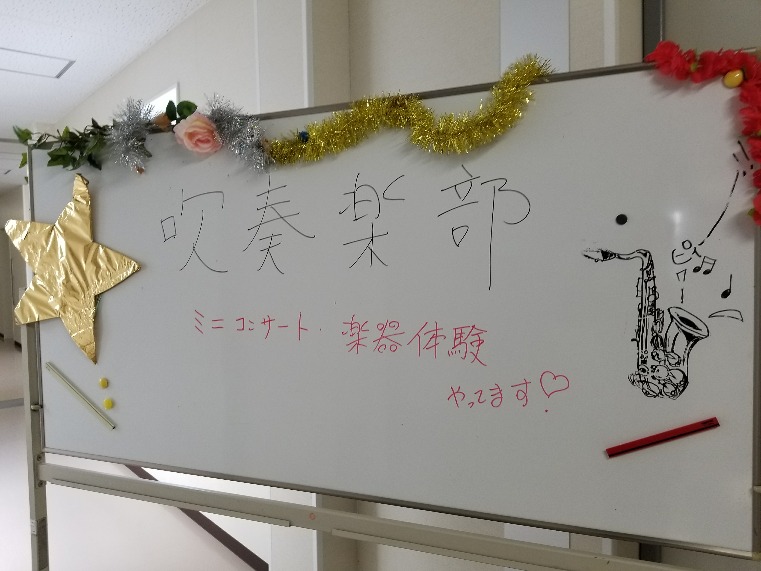 吹奏楽部
ミニコンサート・楽器体験
やってます♡